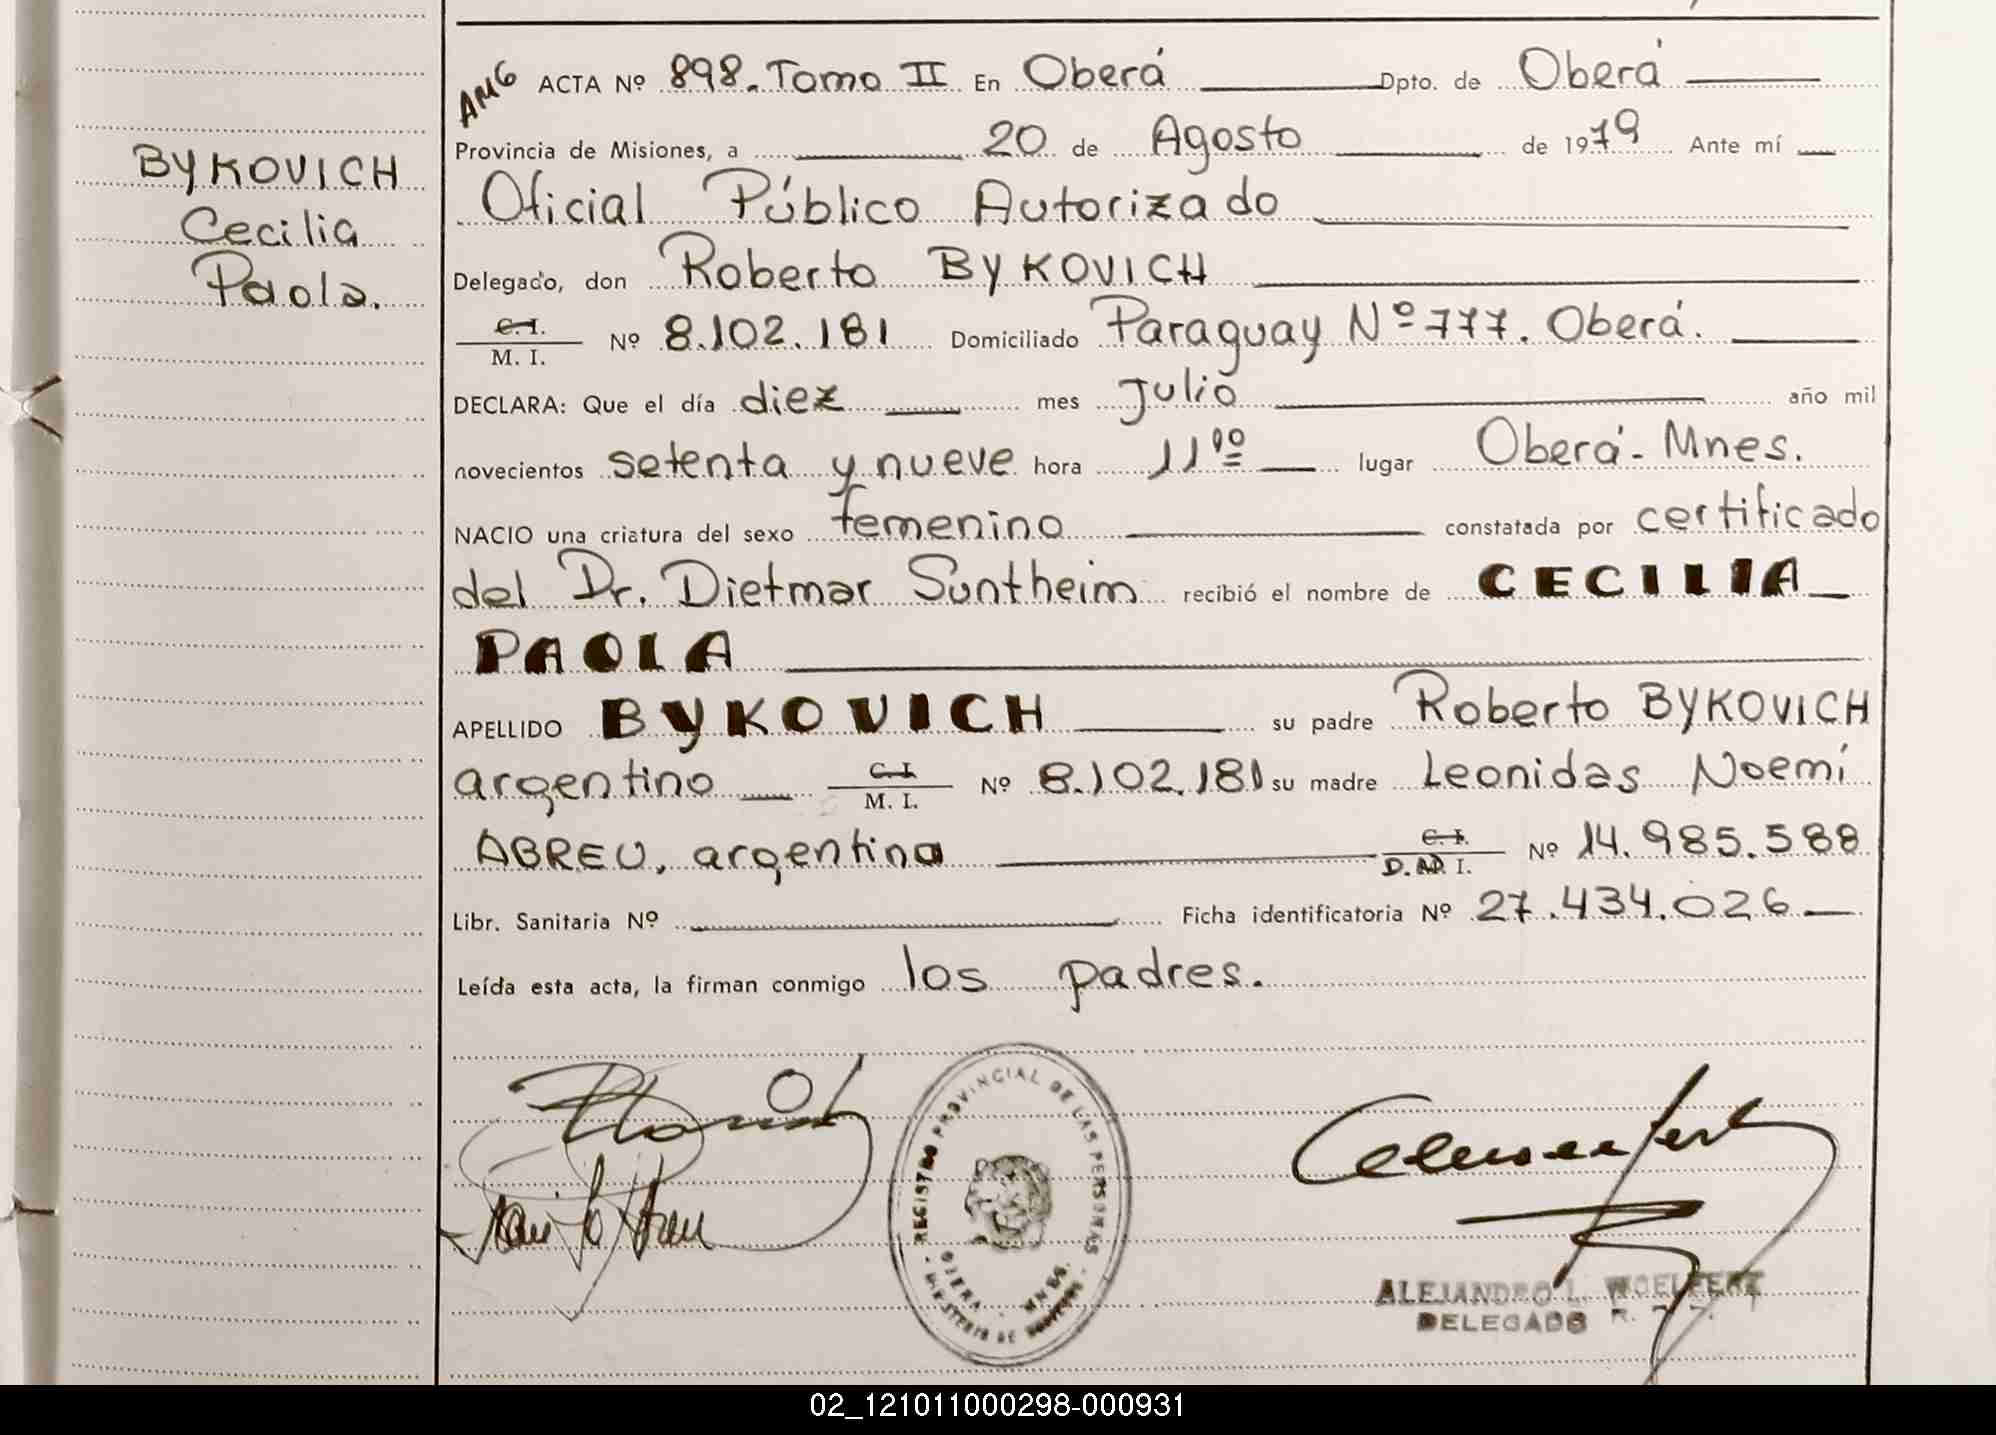 BYKOVICH
Cecilia
Paola.
AMG ACTA Nº 898. Tomo II En Oberá Dpto. de Oberá
Provincia de Misiones, a 20 de Agosto de 1979 Ante mí
Oficial Público Autorizado
Delegado, don Roberto BYKOVICH
C. I.
M. I. Nº 8.102.181 Domiciliado Paraguay Nº 777. Oberá.
DECLARA: Que el día diez mes Julio año mil
novecientos setenta y nueve hora 11⁰⁰ lugar Oberá - Mnes.
NACIO una criatura del sexo femenino constatada por certificado
del Dr. Dietmar Suntheim recibió el nombre de CECILIA
PAOLA
APELLIDO BYKOVICH su padre Roberto BYKOVICH
argentino C. I. M. I. Nº 8.102.181 su madre Leonidas Noemí
ABREU, argentina C. I. D. I. Nº 14.985.588
Libr. Sanitaria Nº Ficha identificatoria Nº 27.434.026
Leída esta acta, la firman conmigo los padres.
REGISTRO PROVINCIAL DE LAS PERSONAS
OBERA - MNES.
MINISTERIO DE GOBIERNO
ALEJANDRO L. WOELFERT
DELEGADO
02_121011000298-000931